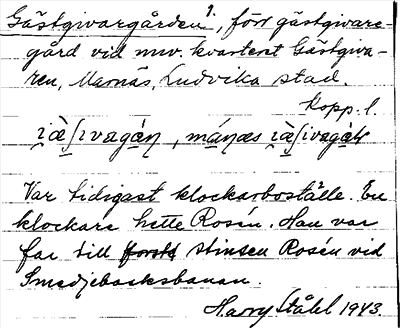 Gästgivargården 1., förr gästgivare-
gård vid nuv. kvarteret Gästgiva-
ren, Marnäs, Ludvika stad.
Kopp. l.
Var tidigast klockarboställe. En
klockare hette Rosén. Han var
far till stinsen Rosén vid
Smedjebacksbanan.
Harry Ståhl 1943.